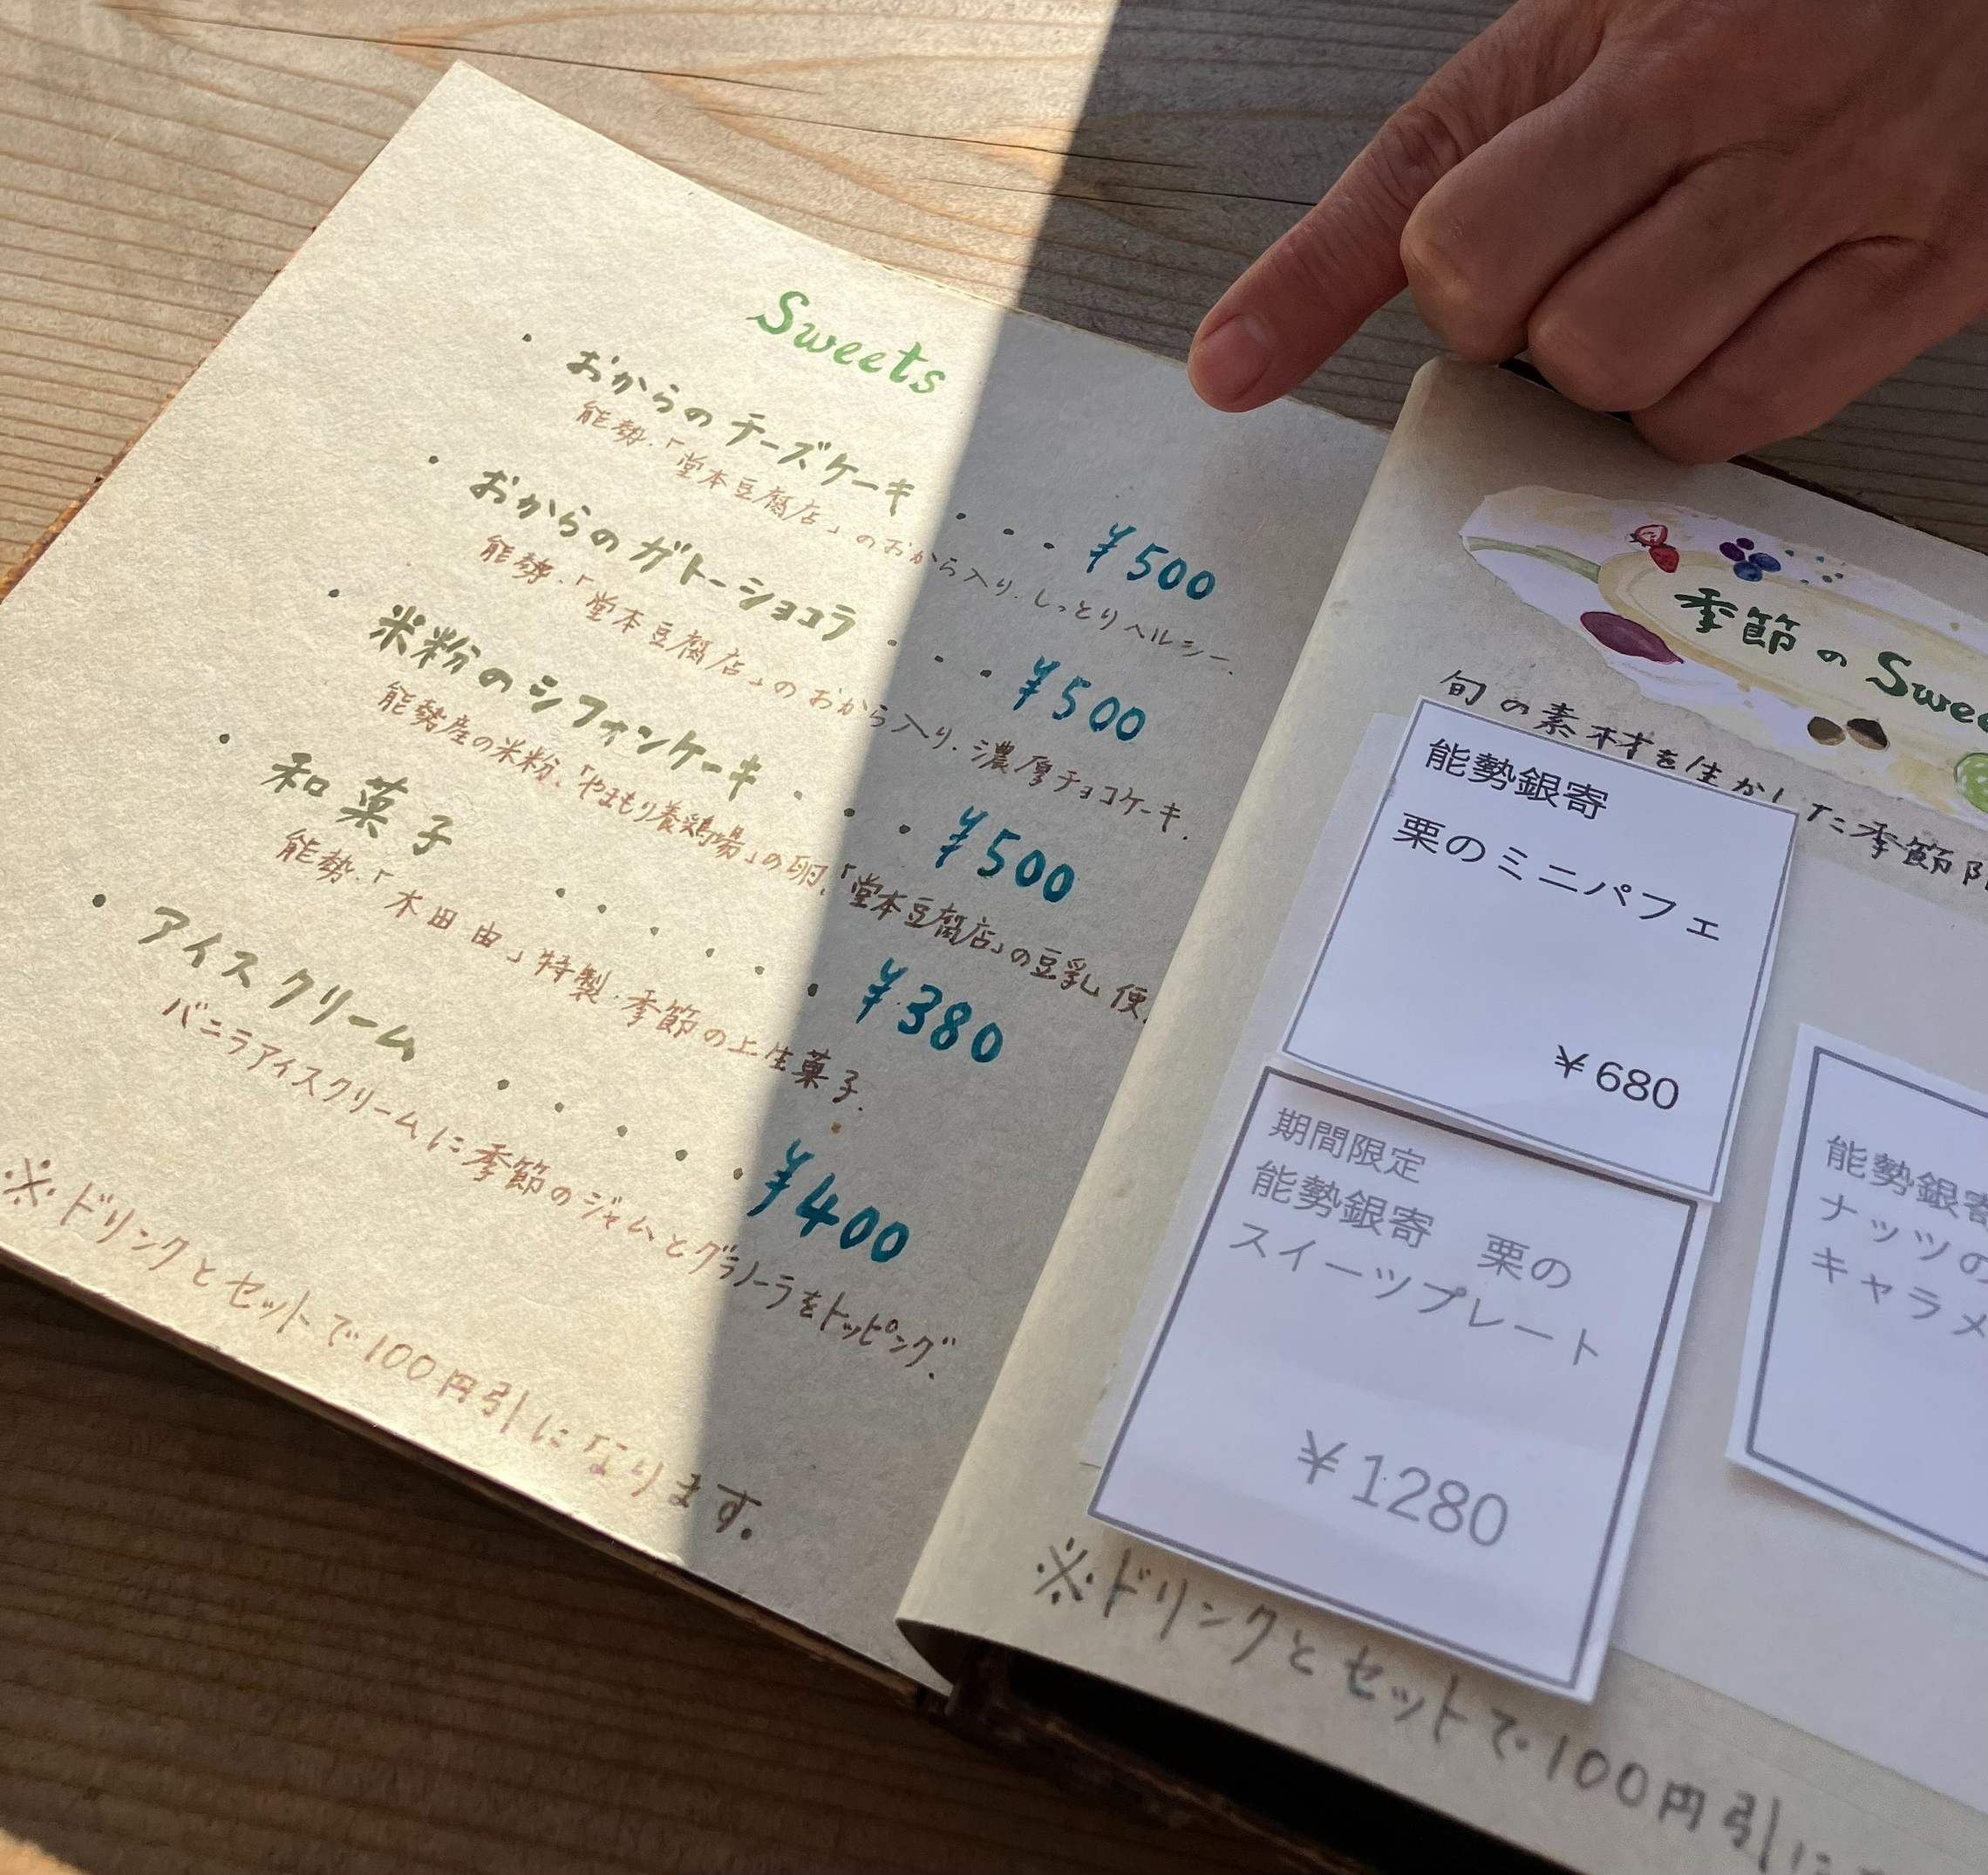 Sweets
・おからのチーズケーキ・・・¥500
能勢・「堂本豆腐店」のおから入り.しっとりヘルシー.
・おからのガトーショコラ・・・¥500
能勢・「堂本豆腐店」のおから入り.濃厚チョコケーキ.
・米粉のシフォンケーキ・・・¥500
能勢産の米粉、「やまもり養鶏場」の卵、「堂本豆腐店」の豆乳使
・和菓子・・・・・・¥380
能勢・「木田由」特製・季節の上生菓子.
・アイスクリーム・・・・・¥400
バニラアイスクリームに季節のジャムとグラノーラをトッピング.
※ドリンクとセットで100円引になります。
季節のSwee
旬の素材を生かした季節限
能勢銀寄
栗のミニパフェ
¥680
期間限定
能勢銀寄 栗の
スイーツプレート
¥1280
能勢銀寄
ナッツの
キャラメ
※ドリンクとセットで100円引に